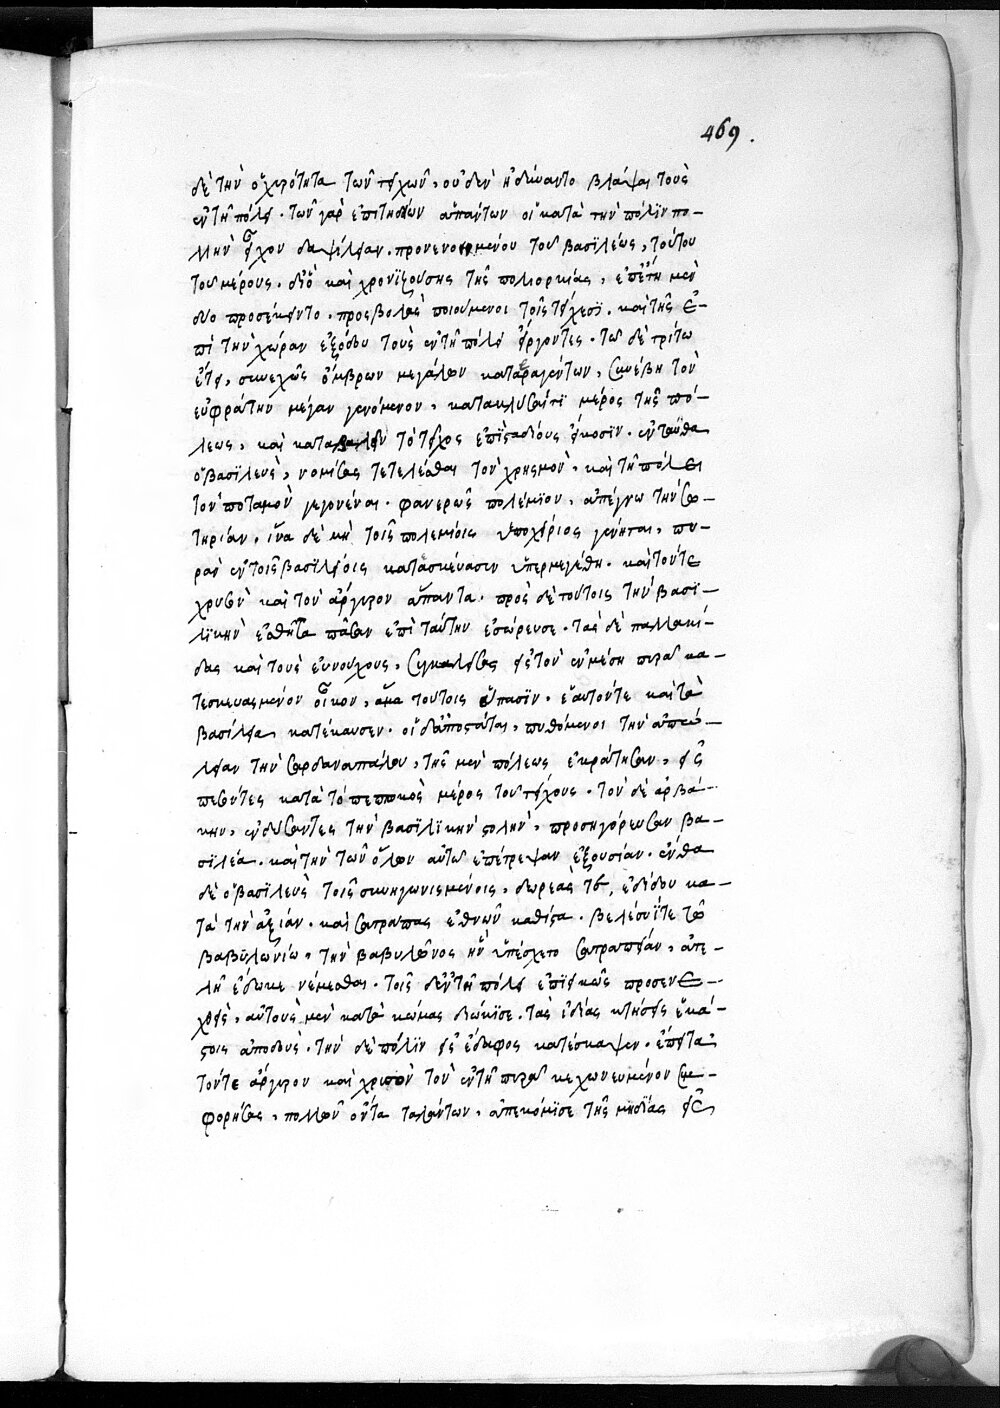 469.
δὲ τὴν ὀχυρότητα τῶν τειχῶν, οὐδὲν ἠδύναντο βλάψαι τοὺς
ἐν τῇ πόλει. τῶν γὰρ ἐπιτηδείων ἁπάντων οἱ κατὰ τὴν πόλϊν πο-
λλὴν εἶχον δαψίλειαν. προνενοημένου τοῦ βασϊλέως, τούτου
τοῦ μέρους. διὸ καὶ χρονϊζούσης τῆς πολιορκίας, ἐπ' ἔτη μὲν
δύο προσέκειντο. προσβολὰς ποιούμενοι τοῖς τείχεσϊ. καὶ τῆς ἐ-
πὶ τὴν χώραν ἐξόδου τοὺς ἐν τῇ πόλει εἴργοντες. τῶ δὲ τρίτω
ἔτει, συνεχῶς ὄμβρων μεγάλων καταραγέντων, συνέβη τὸν
εὐφράτην μέγαν γενόμενον, κατακλύσαί τϊ μέρος τῆς πό-
λεως, καὶ καταβαλεῖν τὸ τεῖχος ἐπὶ σταδίους εἴκοσϊν. ἐνταῦθα
ὁ βασϊλεὺς, νομίσας τετελέσθαι τὸν χρησμὸν, καὶ τῇ πόλει
τὸν ποταμὸν γεγονέναι. φανερῶς πολέμϊον, ἀπέγνω τὴν σω-
τηρίαν. ἵνα δὲ μὴ τοῖς πολεμίοις ὑποχείριος γένηται, πυ-
ρὰν ἐν τοῖς βασϊλείοις κατασκεύασεν ὑπερμεγέθη. καὶ τόντε
χρυσὸν καὶ τὸν ἄργυρον ἅπαντα. πρὸς δὲ τούτοις τὴν βασϊ-
λϊκὴν ἐσθῆτα πᾶσαν ἐπὶ ταύτην ἐσώρευσε. τὰς δὲ παλλακί-
δας καὶ τοὺς εὐνούχους, συγκλείσας εἰς τὸν ἐν μέση πυρᾶ κα-
τεσκευασμένον οἶκον, ἅμα τούτοις ἅπασϊν. ἑαυτόντε καὶ τὰ
βασίλεια κατέκαυσεν. οἱ δ' ἀποστάται, πυθόμενοι τὴν ἀπώ-
λειαν τὴν σαρδαναπάλου, τῆς μὲν πόλεως ἐκράτησαν, εἰς
πεσόντες κατὰ τὸ πεπτωκὸς μέρος τοῦ τείχους. τὸν δὲ ἀρβά-
κην, ἐνδύσαντες τὴν βασϊλϊκὴν στολὴν, προσηγόρευσαν βα-
σϊλέα. καὶ τὴν τῶν ὅλων αὐτῶ ἐπέτρεψαν ἐξουσίαν. ἔνθα
δὲ ὁ βασϊλεὺς τοῖς συναγωνισμένοις, δωρεάς τε, ἐδίδου κα-
τὰ τὴν ἀξίαν. καὶ σατράπας ἐθνῶν καθίστα. βελέσυΐτε τῶ
βαβϋλωνίω, τὴν βαβυλῶνος ἣν ὑπέσχετο σατραπείαν, ἀπε-
λῆ ἔδωκε νέμεσθαι. τοῖς δ' ἐν τῇ πόλει ἐπϊεικῶς προσενε-
χθεὶς, αὐτοὺς μὲν κατὰ κώμας διώκισε. τὰς ἰδίας κτήσεις ἑκά-
στοις ἀποδοὺς. τὴν δὲ πόλϊν εἰς ἔδαφος κατέσκαψεν. ἔπειτα
τόντε ἄργυρον καὶ χρυσὸν τὸν ἐν τῇ πυρᾶ κεχωνευμένον συμ-
φορήσας, πολλῶν ὄντα ταλάντων, ἀπεκόμισε τῆς μηδίας εἰς